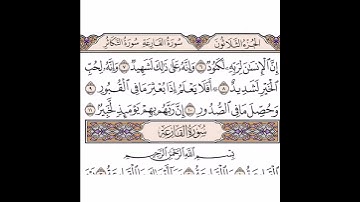 الجزء الثلاثون سورة القارعة سورة التكاثر
إِنَّ ٱلْإِنسَٰنَ لِرَبِّهِۦ لَكَنُودٌ ٦ وَإِنَّهُۥ عَلَىٰ ذَٰلِكَ لَشَهِيدٌ ٧ وَإِنَّهُۥ لِحُبِّ
ٱلْخَيْرِ لَشَدِيدٌ ٨ أَفَلَا يَعْلَمُ إِذَا بُعْثِرَ مَا فِى ٱلْقُبُورِ ٩
وَحُصِّلَ مَا فِى ٱلصُّدُورِ ١٠ إِنَّ رَبَّهُم بِهِمْ يَوْمَئِذٍ لَّخَبِيرٌۢ ١١
سورة القارعة
بِسْمِ ٱللَّهِ ٱلرَّحْمَٰنِ ٱلرَّحِيمِ